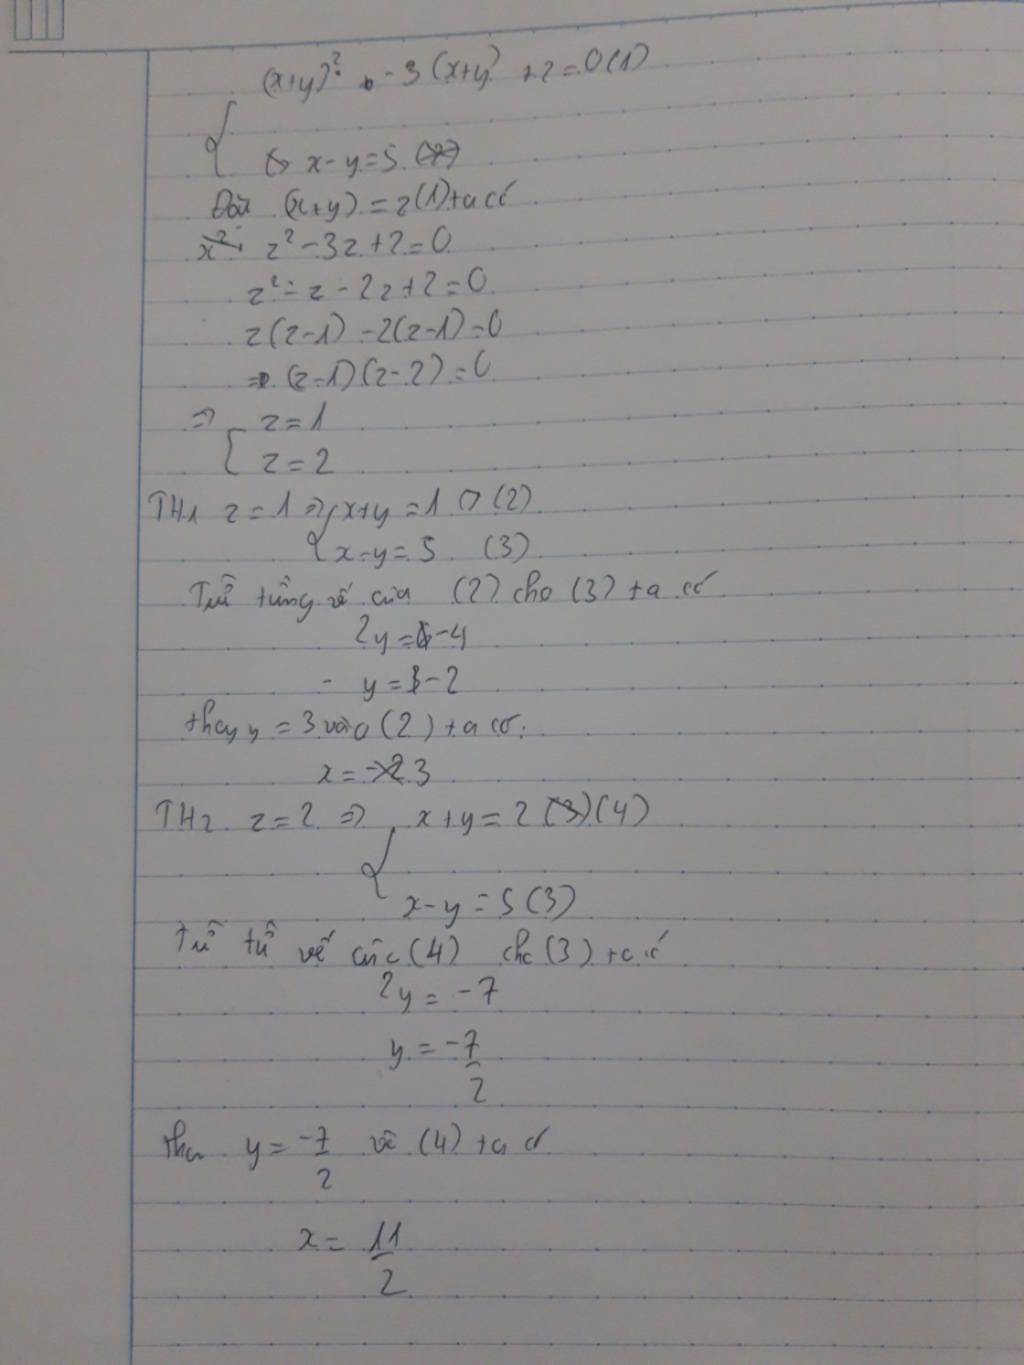 (x+y)² - 3(x+y) + 2 = 0 (1)
x - y = 5
Đặt (x+y) = z (1) ta có
z² - 3z + 2 = 0
z² - z - 2z + 2 = 0
z(z-1) - 2(z-1) = 0
(z-1)(z-2) = 0
⇒ z = 1
z = 2
TH1 z = 1 ⇒ x+y = 1 (2)
x - y = 5 (3)
Trừ từng vế của (2) cho (3) ta có
2y = -4
y = -2
thay y = 3 vào (2) ta có:
x = 3
TH2 z = 2 ⇒ x + y = 2 (4)
x - y = 5 (3)
Trừ vế của (4) cho (3) ta có
2y = -7
y = -7/2
thay y = -7/2 (4) ta có
x = 11/2